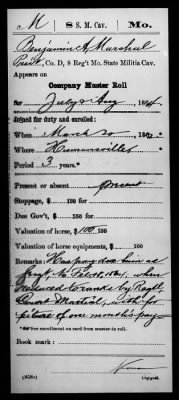 M 8 S. M. Cav. Mo.
Benjamin A. Marshal
Pvt., Co. D, 8 Reg't Mo. State Militia Cav.
Appears on
Company Muster Roll
for July & Aug, 1864
Joined for duty and enrolled:
When March 20, 186
Where Humansville
Period 3 years.*
Present or absent Present
Stoppage, $ 100
Due Gov't, $ 100
Valuation of horse, $ 100 100
Valuation of horse equipments, $ 100
Remarks: Has pay due him as
Sergt. to Feb. when
reduced to ranks by Regtl.
Court Martial, with for
feiture of one month's pay
*See enrollment on card from muster-in roll.
Book mark:
(858c) Copyist.